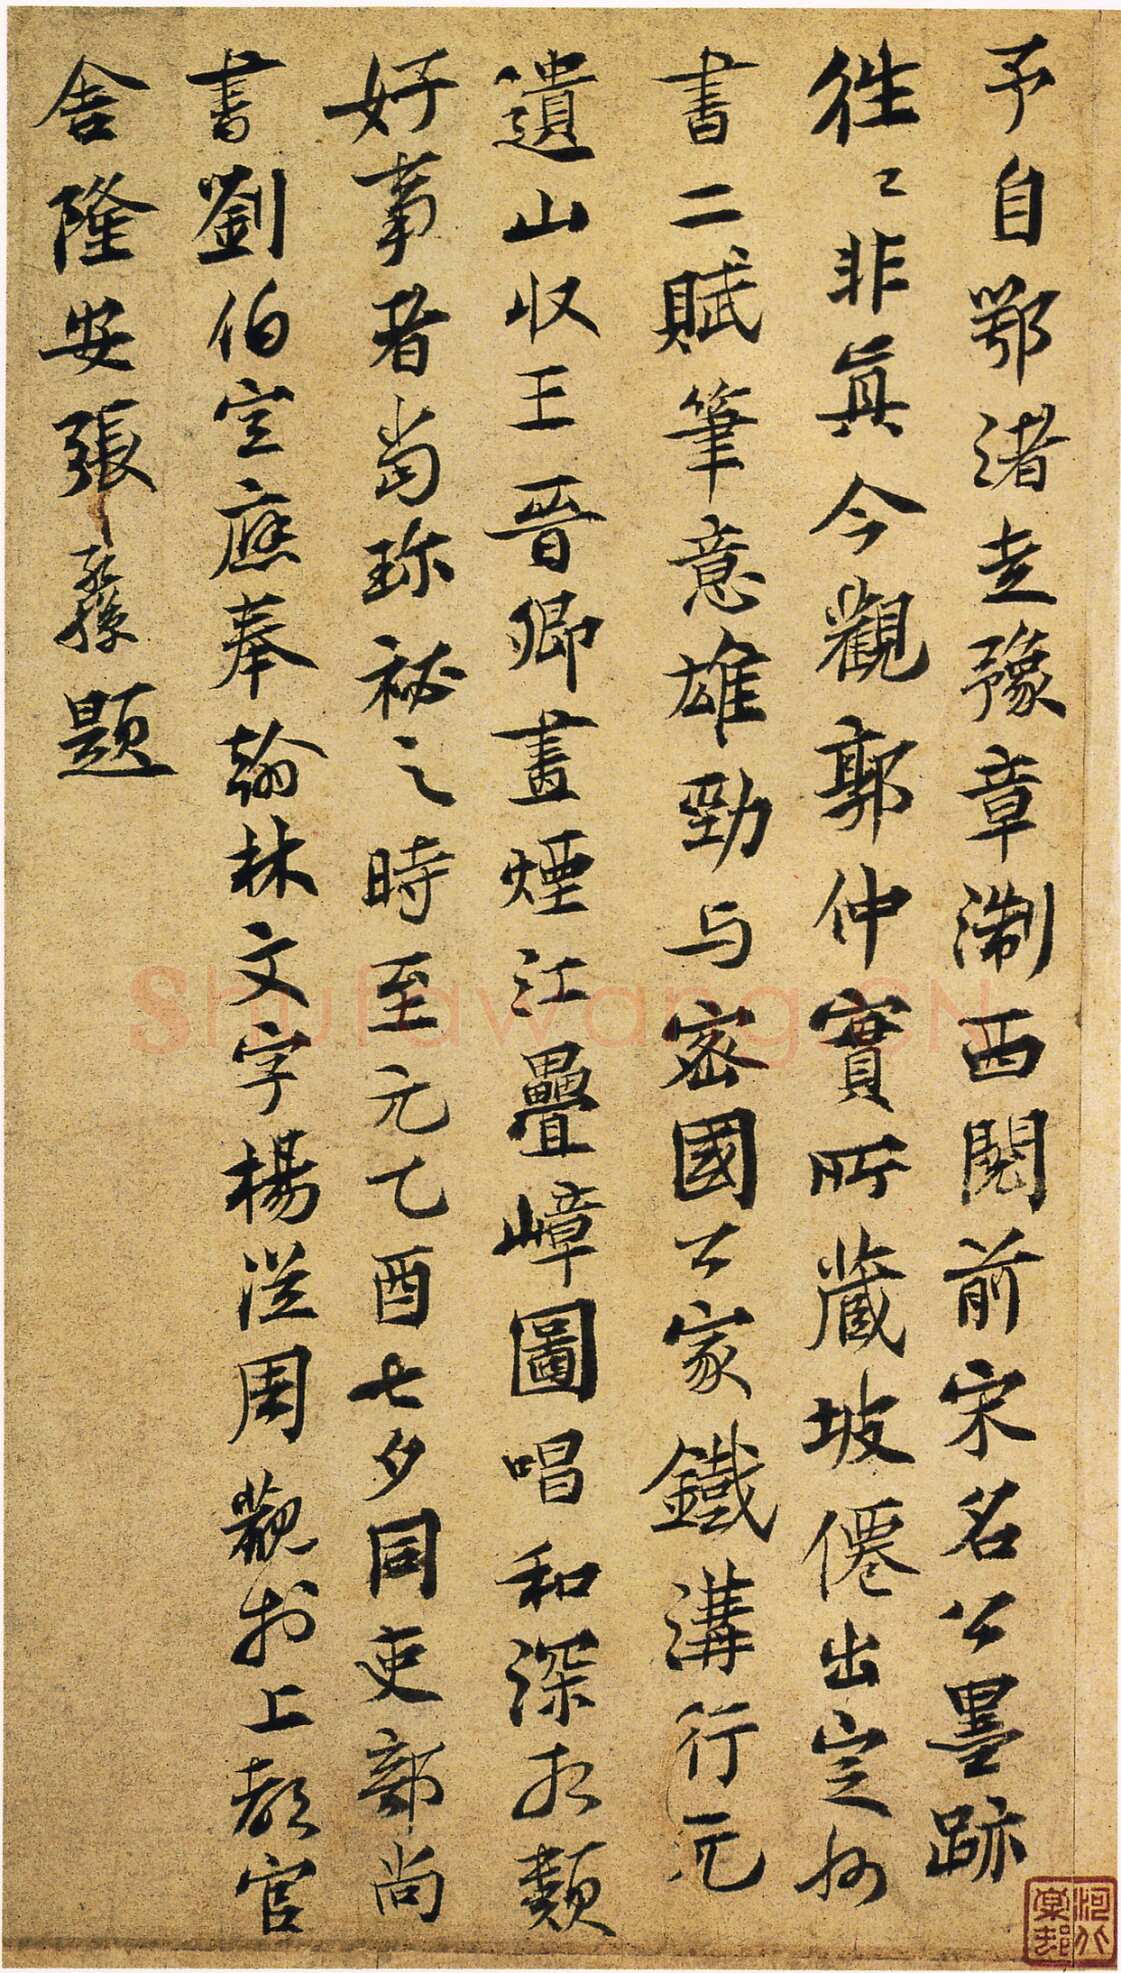 予自鄂渚走豫章淛西閱前宋名公墨跡
徃〻非眞今觀郭仲實所藏坡僊出定州
書二賦筆意雄勁与密國公家鐵溝行元
遺山收王晉卿畫煙江疊嶂圖唱和深相類
好事者當珎祕之時至元乙酉七夕同吏部尚
書劉伯宣應奉翰林文字楊從周觀於上都官
舍隆安張孫題
Shufawang.CN
河北棠邨